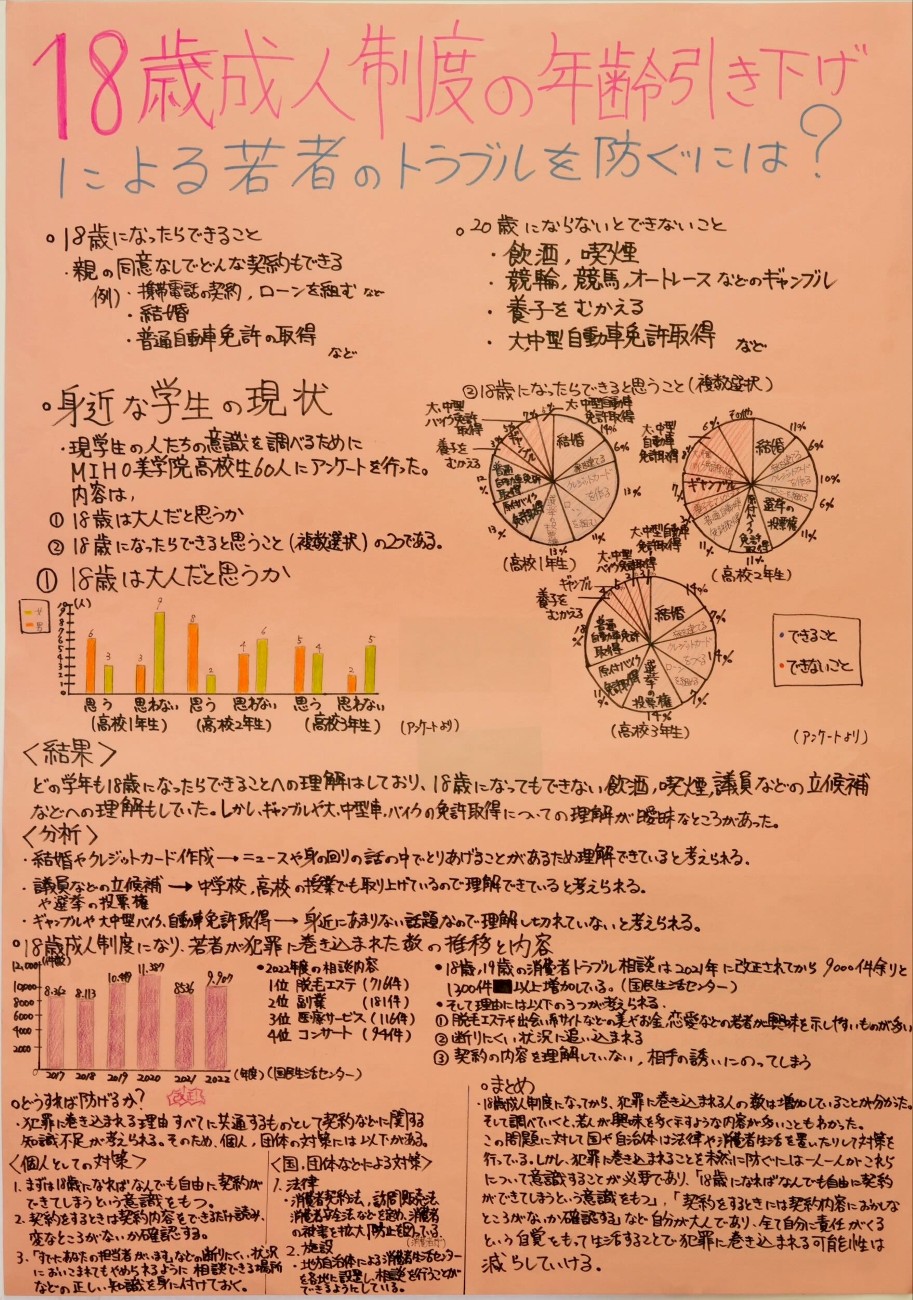 18歳成人制度の年齢引き下げ
による若者のトラブルを防ぐには？
○18歳になったらできること
・親の同意なしでどんな契約もできる
例）・携帯電話の契約，ローンを組む など
・結婚
・普通自動車免許の取得
など
○20歳にならないとできないこと
・飲酒，喫煙
・競輪，競馬，オートレースなどのギャンブル
・養子をむかえる
・大,中型自動車免許取得 など
○身近な学生の現状
・現学生の人たちの意識を調べるために
MIHO美学院高校生60人にアンケートを行った。
内容は，
① 18歳は大人だと思うか
② 18歳になったらできると思うこと（複数選択）の2つである。
① 18歳は大人だと思うか
女
男
(人)
6 3 3 9 8 2 4 6 5 4 2 5
思う 思わない 思う 思わない 思う 思わない
(高校1年生) (高校2年生) (高校3年生) (アンケートより)
②18歳になったらできると思うこと（複数選択）
大,中型バイク免許取得
大,中型自動車免許取得
養子をむかえる
ギャンブル
結婚
14%
6%
クレジットカードを作る
13%
ローン
11%
選挙の
13%
原付バイク免許取得
13%
普通自動車免許取得
12%
(高校1年生)
その他
結婚
11%
6%
クレジットカードを作る
10%
6%
選挙の投票権
11%
原付バイク免許取得
11%
普通自動車免許取得
11%
ギャンブル
7%
大,中型自動車免許取得
8%
6%
(高校2年生)
大,中型自動車免許取得
大,中型バイク免許取得
ギャンブル
養子をむかえる
結婚
14%
クレジットカードをつくる
14%
7%
選挙の投票権
14%
原付バイク免許取得
11%
普通自動車免許取得
(高校3年生)
・できること
・できないこと
(アンケートより)
＜結果＞
どの学年も18歳になったらできることへの理解はしており、18歳になってもできない飲酒,喫煙,議員などの立候補
などへの理解もしていた。しかし、ギャンブルや大,中型車,バイクの免許取得についての理解が曖昧なところがあった。
＜分析＞
・結婚やクレジットカード作成→ニュースや身の回りの話の中でとりあげることがあるため理解できていると考えられる。
・議員などの立候補→中学校,高校の授業でも取り上げているので理解できていると考えられる。
や選挙の投票権
・ギャンブルや大中型バイク、自動車免許取得→身近にあまりない話題なので理解しきれていないと考えられる。
○18歳成人制度になり、若者が犯罪に巻き込まれた数の推移と内容
(件数)
12,000
10,000
8000
6000
4000
2000
8.362 8.113 10.499 11.387 8536 9.907
2017 2018 2019 2020 2021 2022 (年度)(国民生活センター)
改正
●2022年度の相談内容
1位 脱毛エステ (716件)
2位 副業 (181件)
3位 医療サービス (116件)
4位 コンサート (94件)
●18歳，19歳の消費者トラブル相談は2021年に改正されてから9000件余りと
1300件以上増加している。(国民生活センター)
●そして理由には以下の3つが考えられる.
① 脱毛エステや出会い系サイトなどの美やお金,恋愛などの若者が興味を示しやすいものが多い
② 断りにくい状況に追い込まれる
③ 契約の内容を理解していない，相手の誘いにのってしまう
○どうすれば防げるか？
・犯罪に巻き込まれる理由すべてに共通するものとして契約などに関する
知識不足が考えられる。そのため、個人,団体の対策には以下がある。
＜個人としての対策＞
1. まずは18歳になればなんでも自由に契約が
できてしまうという意識をもつ。
2. 契約をするときは契約内容をできるだけ読み、
変なところがないか確認する。
3. 「すでにあなたの担当者がいます」などの断りにくい状況
においこまれてもやめられるように相談できる場所
などの正しい知識を身に付けておく。
＜国,団体などによる対策＞
1. 法律
・消費者契約法、訪問販売法、
消費者安全法などを定め、消費者
の被害を拡大防止を図っている。
2. 施設
・地方自治体による消費生活センター
を各地に設置し、相談を行うことが
できるようにしている。
○まとめ
・18歳成人制度になってから、犯罪に巻き込まれる人の数は増加していることが分かった。
そして調べていくと、若い人が興味を多く示すような内容が多いこともわかった。
この問題に対して国や自治体は法律や消費者生活を置いたりして対策を
行っている。しかし、犯罪に巻き込まれることを未然に防ぐには一人一人がこれら
について意識することが必要であり、「18歳になればなんでも自由に契約
ができてしまうという意識をもつ」、「契約をするときには契約内容におかしな
ところがないか確認する」など自分が大人であり、全て自分に責任がくる
という自覚をもって生活することで犯罪に巻き込まれる可能性は
減らしていける。